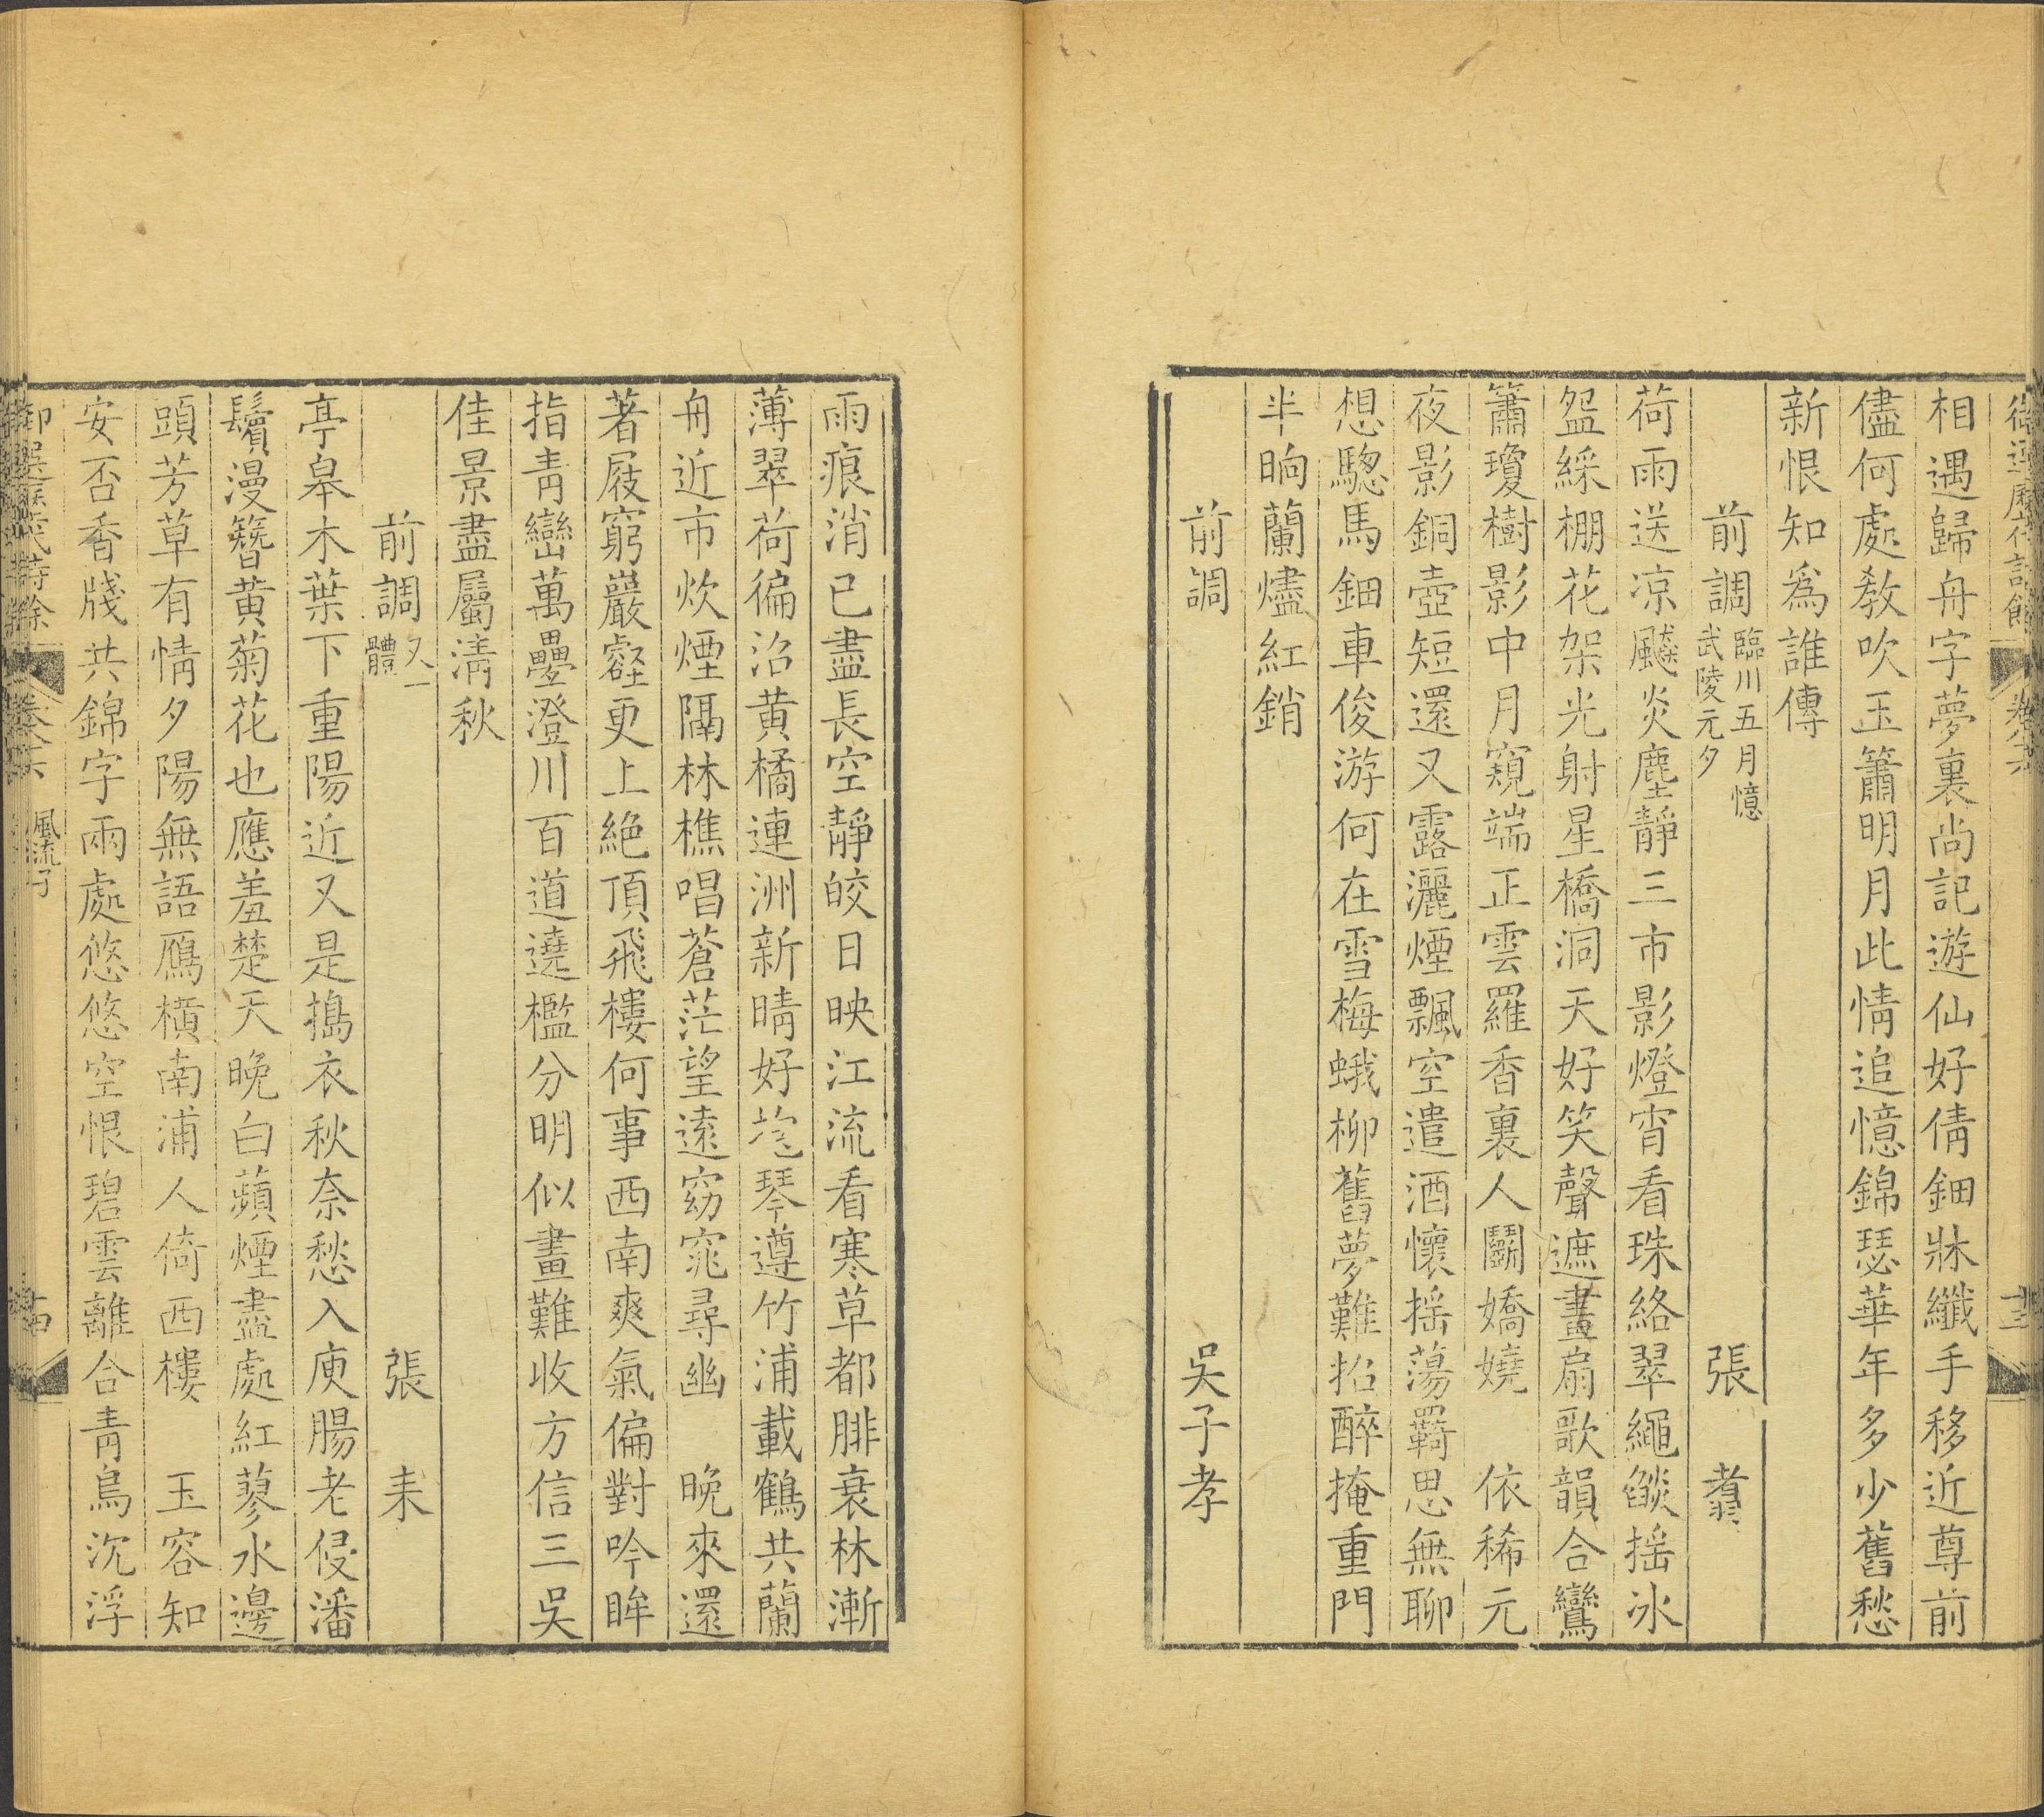 相遇歸舟字夢裏尚記遊仙好倩鈿牀纖手移近尊前
儘何處教吹玉簫明月此情追憶錦瑟華年多少舊愁
新恨知為誰傳
前調臨川五月憶武陵元夕 張翥
荷雨送凉飈炎塵靜三市影燈宵看珠絡翠繩燄搖冰
盌綵棚花架光射星橋洞天好笑聲遮晝扇歌韻合鸞
簫瓊樹影中月窺端正雲羅香裏人鬭嬌嬈 依稀元
夜影銅壺短還又露灑煙飄空遣酒懷搖蕩羇思無聊
想驄馬鈿車俊游何在雪梅蛾柳舊夢難招醉掩重門
半晌蘭燼紅銷
前調 吳子孝
雨痕消已盡長空靜皎日映江流看寒草都腓衰林漸
薄翠荷徧沿黃橘連洲新晴好琴遵竹浦載鶴共蘭
舟近市炊煙隔林樵唱蒼茫望遠窈窕尋幽 晚來還
著屐窮巖壑更上絕頂飛樓何事西南爽氣偏對吟眸
指青巒萬疊澄川百道遶檻分明似畫難收方信三吳
佳景盡屬清秋
前調又一體 張耒
亭皋木葉下重陽近又是搗衣秋奈愁入庾腸老侵潘
鬢漫簪黃菊花也應羞楚天晚白蘋煙盡處紅蓼水邊
頭芳草有情夕陽無語鴈橫南浦人倚西樓 玉容知
安否香牋共錦字兩處悠悠空恨碧雲離合青鳥沉浮
御選歷代詩餘 卷八十六 風流子 十四